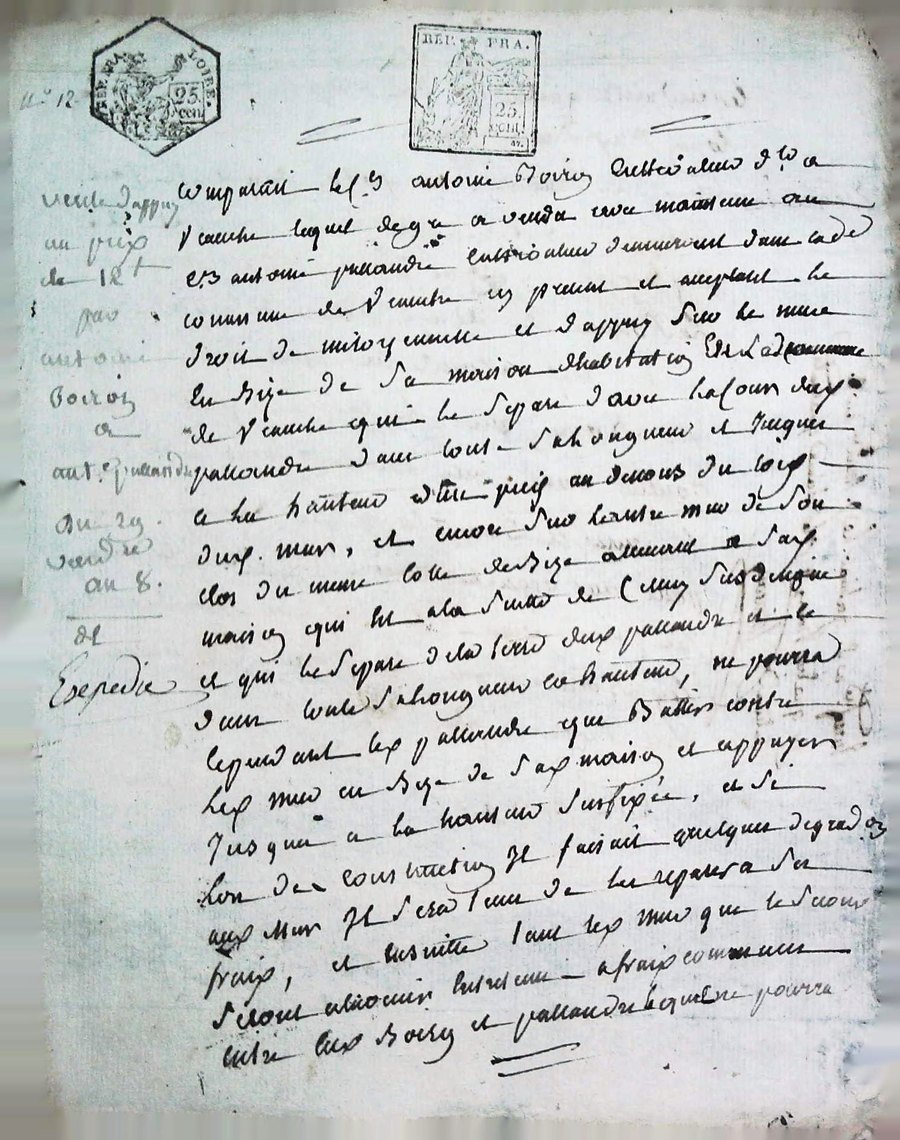 N.° 12
REP. FRA. LOIRE.
25 cent
REP. FRA.
25 cent
vente d'appuy
au prix
de 12 tt
par
antoine
Boiron
a
ant.e pallandre
du 29
vendre
an 8.
dt
Expedié
Comparait le C.en antoine Boiron Cultivateur
lequel degré a vendu avec maintenue au
C.en antoine pallandre Cultivateur demeurant dans lad.e
commune de present et acceptant le
droit de mitoyennette et d'appuy sur le mur
en Bize de sa maison d'habitation
de qui le separe d'avec la Cour dud.
pallandre dans toute sa longueur et jusques
a la hauteur au dessous du toit
dud. mur, et encore sur l'autre mur de son
clos du meme cotté de Bize a sad.
maison qui est a la suitte de Celuy susdesigné
et qui le separe de la terre dud pallandre et le
dans toute sa longueur et hauteur, ne pourra
Cependant led pallandre que Battir contre
led mur en Bize de sad maison et appuyer
jusques a la hauteur susfixée, et si
lors de la construction Il faisait quelques degrad.on
aux Murs Il sera tenu de les reparer a ses
fraix, et ensuitte tant led mur que le second
seront a l'avenir entretenus a fraix communs
entre lesd Boiron et pallandre lequel ne pourra